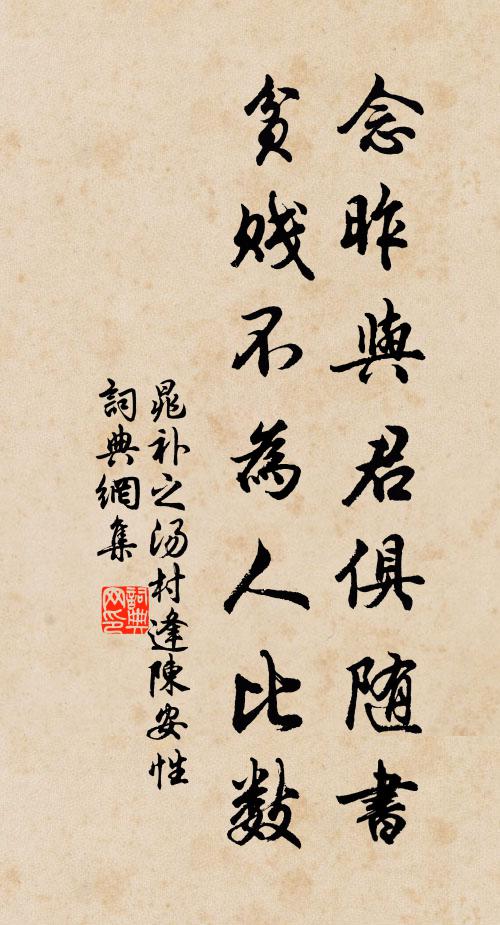 念昨與君俱随書
貧賤不為人比數
晁补之汤村逢陳安性
詞典網集
詞典网印